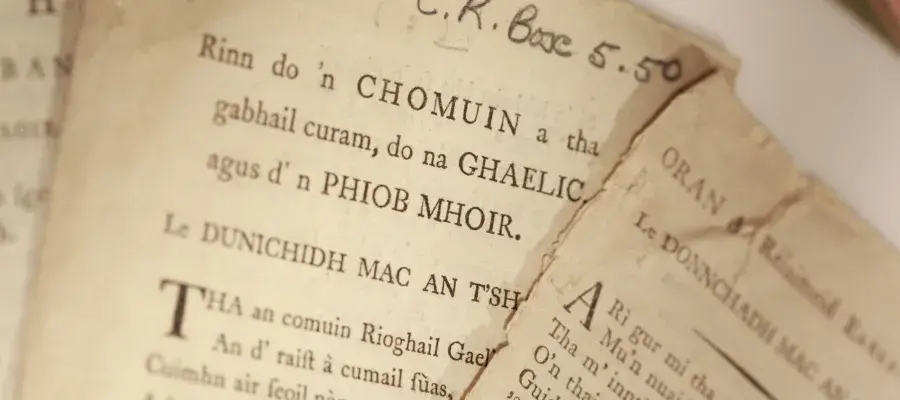 C.R. Box 5.50
Rinn do 'n CHOMUIN a tha
gabhail curam, do na GHAELIC,
agus d' n PHIOB MHOIR.
Le DUNICHIDH MAC AN T'SH
THA an comuin Rioghail Gael'
An d' raiſt à cumail ſùas,
Cuimhn air ſeoil
ORAN d'
Le DONNCHADH MAC AN
A Ri gur mi tha
Mu'n nuai
Tha m' innt
O'n thai
Guid